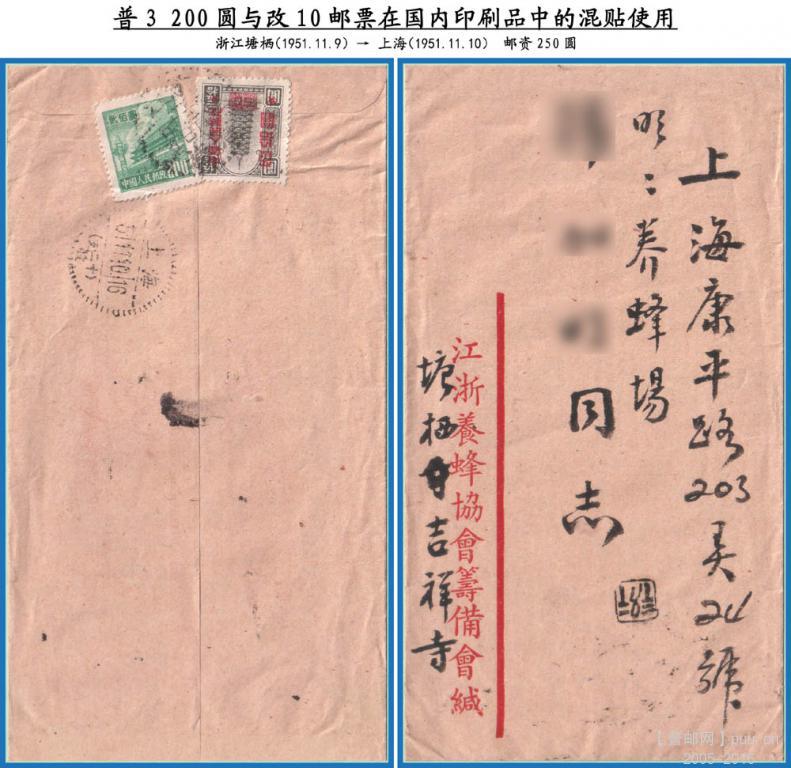 普3 200圆与改10邮票在国内印刷品中的混贴使用
浙江塘栖(1951.11.9) → 上海(1951.11.10) 邮资250圆
中國人民郵政
上海
上海康平路203弄24號
明：养蜂場
同志
江浙養蜂協會籌備會緘
塘栖
吉祥寺
【普邮网】puu.cn
2005-2016